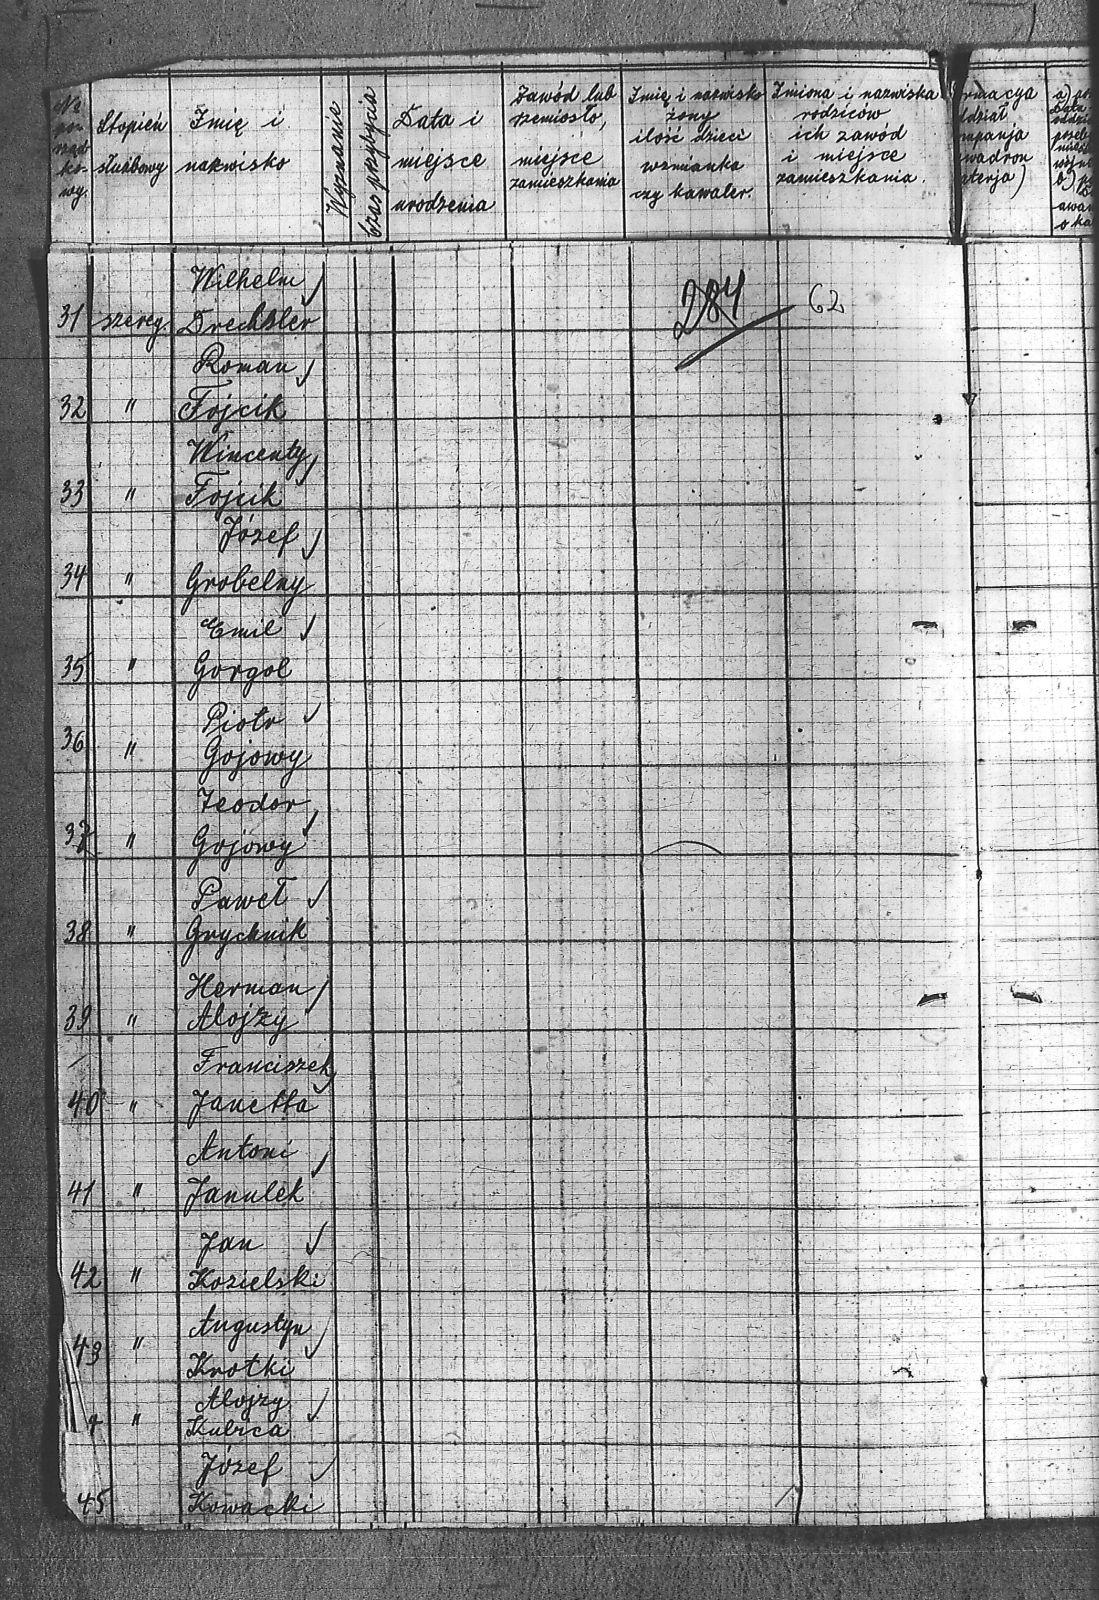 No
por
ząd
ko-
wy.
Stopień
służbowy
Imię i
nazwisko
Wyznanie
Czas przybycia
Data i
miejsce
urodzenia
Zawód lub
rzemiosło,
miejsce
zamieszkania
Imię i nazwisko
żony
ilość dzieci
wzmianka
czy kawaler.
Imiona i nazwiska
rodziców
ich zawód
i miejsce
zamieszkania.
rmacya
ddział
mpanja
wadron
terja)
a)
Data
b)
Wilhelm
31 szereg. Drechsler
284 62
Roman
32 " Fojcik
Wincenty
33 " Fojcik
Józef
34 " Grobelny
Emil
35 " Gorgol
Piotr
36 " Gojowy
Teodor
37 " Gojowy
Paweł
38 " Grychnik
Herman
39 " Alojzy
Franciszek
40 " Janetta
Antoni
41 " Janulek
Jan
42 " Kozielski
Augustyn
43 "
Krotki
Alojzy
4 " Kubica
Józef
45 Kowacki